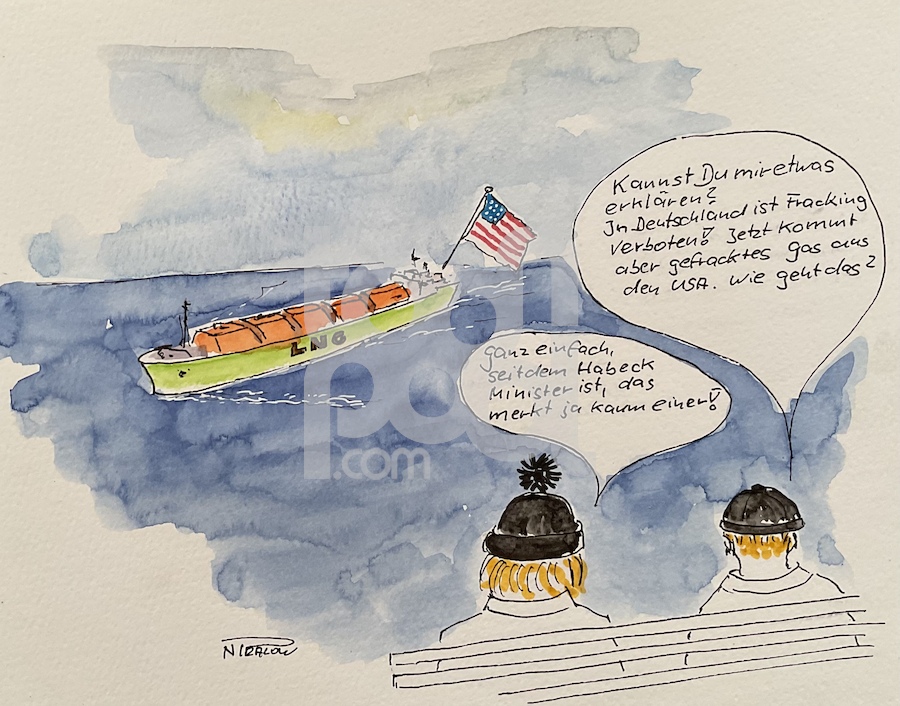 Kannst Du mir etwas
erklären?
In Deutschland ist Fracking
verboten! Jetzt kommt
aber gefracktes Gas aus
den USA. Wie geht das?
ganz einfach,
seitdem Habeck
Minister ist, das
merkt ja kaum einer!
LNG
toonpool
.com